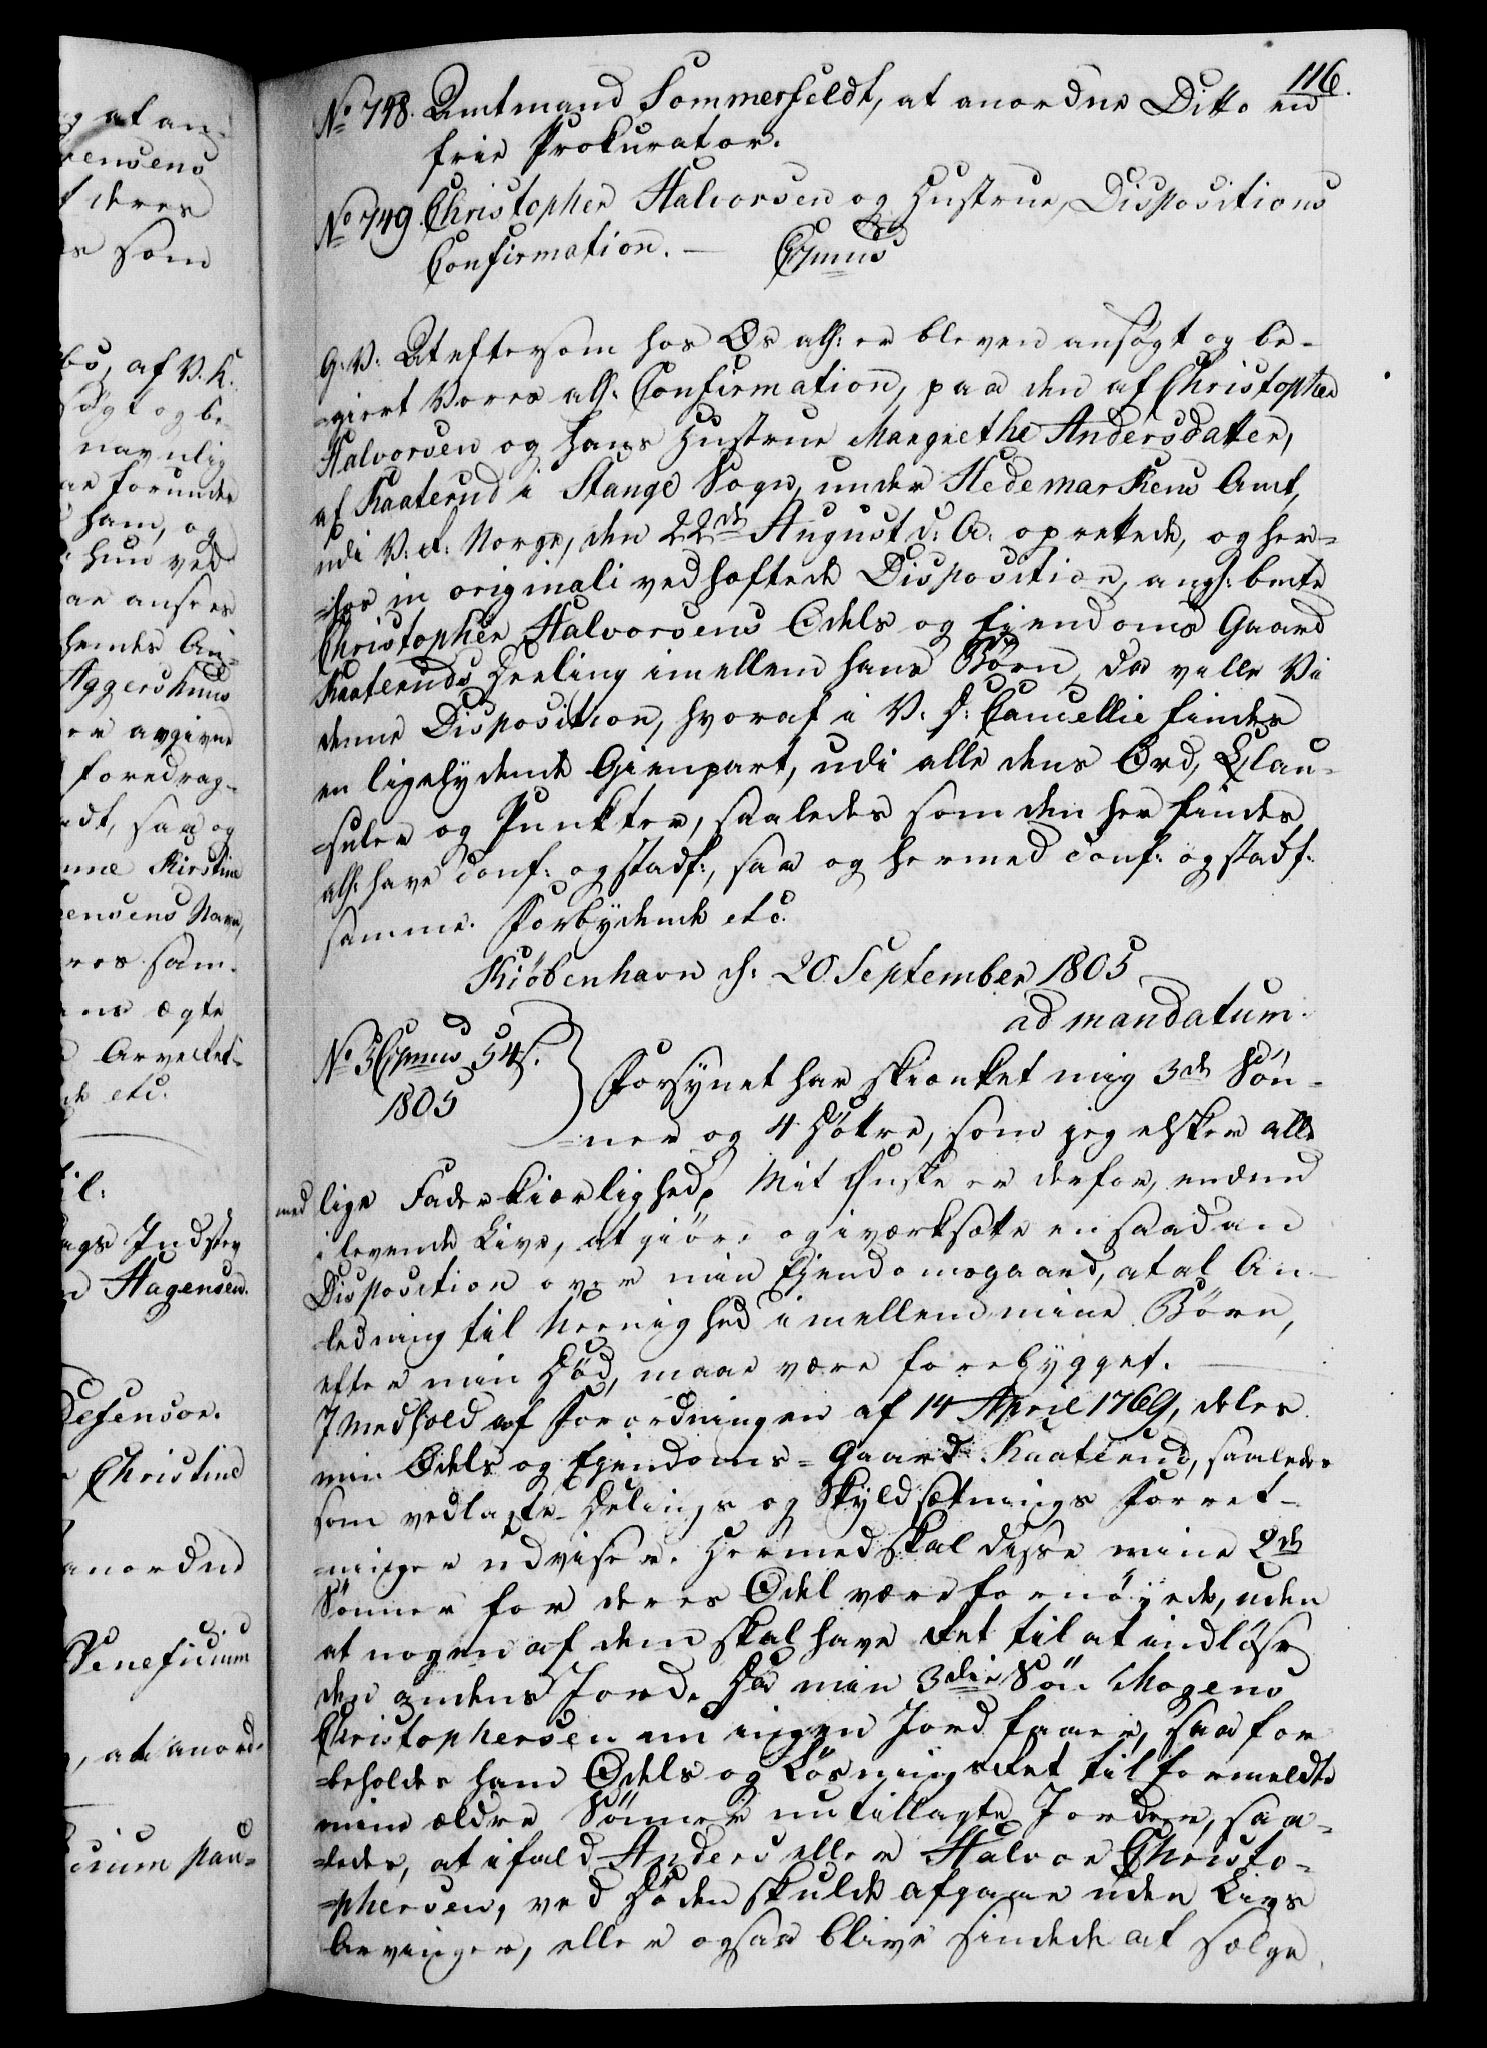 116.
No 748. Amtmand Sommerfeldt, at anordne Ditto en
frie Prokurator.
No 749. Christopher Halvorsen og Hustrue, Dispositions
Confirmation. —
G: V: At eftersom hos Os all: er bleven ansøgt og be-
-giert Vores all: Confirmation, paa den af Christopher
Halvorsen og hans Hustrue Margrethe Andersdatter,
af Kaaterud i Stange Sogn, under Hedemarkens Amt,
udi V: R: Norge, den 22de August d: A: oprettede, og her-
-hos in originali vedhæftede Disposition, angl: bemte
Christopher Halvorsens Odels og Ejendoms Gaard
Kaateruds Deeling imellem hans Børn, da ville Vi
denne Disposition, hvoraf i V: D: Cancellie findes
en ligelydende Gienpart, udi alle dens Ord, Clau-
-suler og Punkter, saaledes som den her findes,
all: have conf: og stadf:, saa og hermed conf: og stadf:
samme. Forbydende etc.
Kiøbenhavn d: 20 September 1805
ad mandatum.
1805
Forsynet har skienket mig 3de Søn-
-ner og 4 Døttre, som jeg elsker alle
med lige Faderkiærlighed. Mit Ønske er derfor, endnu
i levende Live, at giøre og iværksætte en saadan
Disposition over min Ejendomsgaard, at al An-
-ledning til Ueenighed imellem mine Børn,
efter min Død, maae være forebygget. —
I Medhold af Forordningen af 14 April 1769, deles
min Odels og Ejendoms-Gaard Kaaterud, saaledes
som vedlagte Delings og Skyldsætnings Forret-
-ninger udviser. Hermed skal disse mine 2de
Sønner for deres Odel være fornøyede, uden
at nogen af dem skal have Ret til at indløse
den andens Jord. Da min 3die Søn Mogens
Christophersen nu ingen Jord faaer, saa for
-beholdes ham Odels og Løsningsret til formeldte
mine ældre Sønner nu tillagte Jorder, saa-
-ledes, at ifald Anders eller Halvor Christo-
-phersen, ved Døden skulde afgaae uden Livs
Arvinger, eller ogsaa blive sindede at sælge